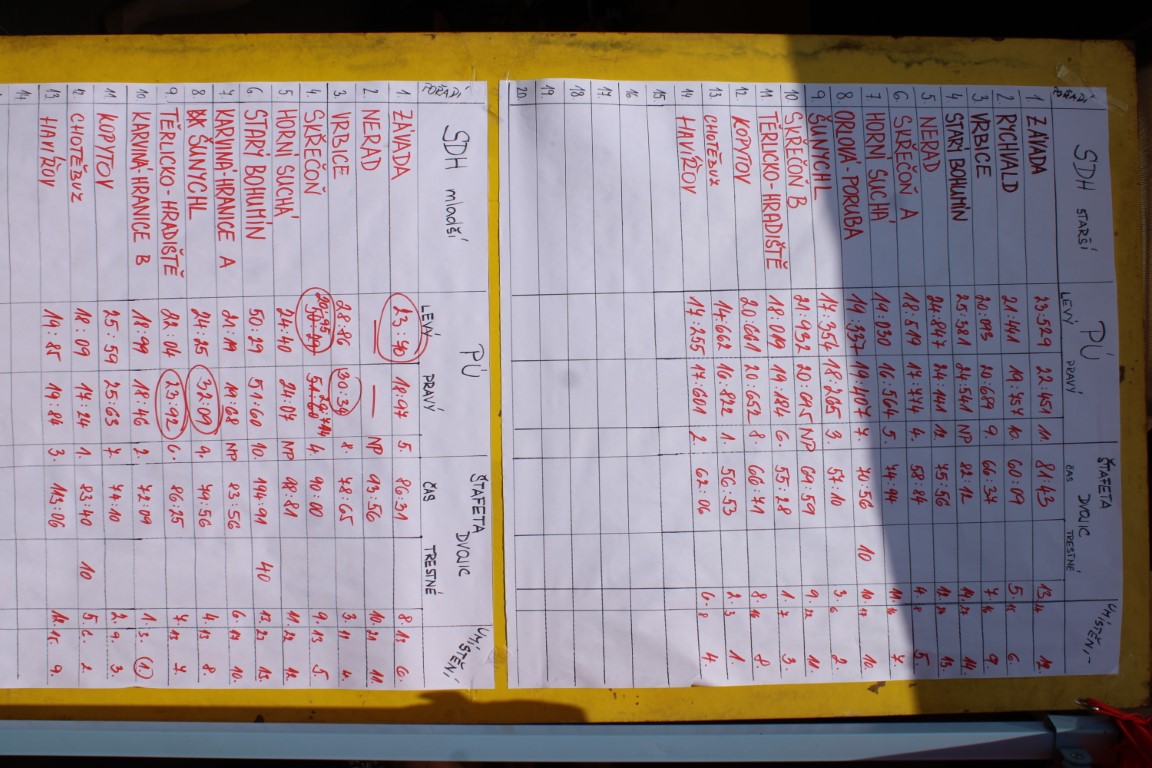 SDH STARŠÍ PÚ ŠTAFETA DVOJIC UMÍSTĚNÍ
POŘADÍ LEVÝ PRAVÝ ČAS TRESTNÉ
1. ZÁVADA 23:529 22:451 11. 81:43 13.
2. RYCHVALD 21:441 19:757 10. 60:09 5. 6.
3. VRBICE 20:093 20:689 9. 66:37 7. 9.
4. STARÝ BOHUMÍN 25:381 24:541 NP 82:12 14. 14.
5. NERAD 24:847 24:141 12. 75:56 12. 13.
6. SKŘEČOŇ A 18:519 17:714 4. 58:84 4. 5.
7. HORNÍ SUCHÁ 19:030 16:564 5. 74:44 7.
8. ORLOVÁ-PORUBA 19:337 19:107 7. 70:56 10 10. 10.
9. ŠUNYCHL 17:354 18:065 3. 57:10 3. 6 2.
10. SKŘEČOŇ B 21:932 20:695 NP 69:59 9. 11.
11. TĚRLICKO-HRADIŠTĚ 18:019 19:184 6. 55:28 1. 7 3.
12. KOPYTOV 20:661 20:652 8. 66:71 8. 16 8.
13. CHOTĚBUZ 14:662 16:822 1. 56:53 2. 3 1.
14 HAVÍŘOV 17:255 17:601 2. 62:06 6. 8 4.
15.
16
17
18
19
20
SDH mladší PÚ ŠTAFETA DVOJIC UMÍSTĚNÍ
POŘADÍ LEVÝ PRAVÝ ČAS TRESTNÉ
1. ZÁVADA 23:40 18:47 5. 86:31 8. 6.
2 NERAD — — NP 93:56 10. 11.
3 VRBICE 28:86 30:34 8. 78:65 3. 11 4.
4. SKŘEČOŇ 4. 90:00 9. 13 5.
5 HORNÍ SUCHÁ 24:40 24:07 NP 98:81 11. 12
6 STARÝ BOHUMÍN 50:29 51:60 10. 194:91 40 13. 23 13.
7 KARVINÁ-HRANICE A 21:19 19:68 NP 83:56 6. 10.
8 ŠUNYCHL 24:25 32:09 9. 79:56 4. 13 8.
9. TĚRLICKO-HRADIŠTĚ 22:04 23:92 6. 86:25 7. 13 7.
10 KARVINÁ-HRANICE B 18:99 18:46 2. 72:09 1. 3. 1.
11 KOPYTOV 25:59 25:63 7 74:10 2. 9. 3.
12 CHOTĚBUZ 18:09 17:24 1. 83:40 10 5. 6. 2
13 HAVÍŘOV 19:85 19:84 3. 113:06 12. 15. 9.
14